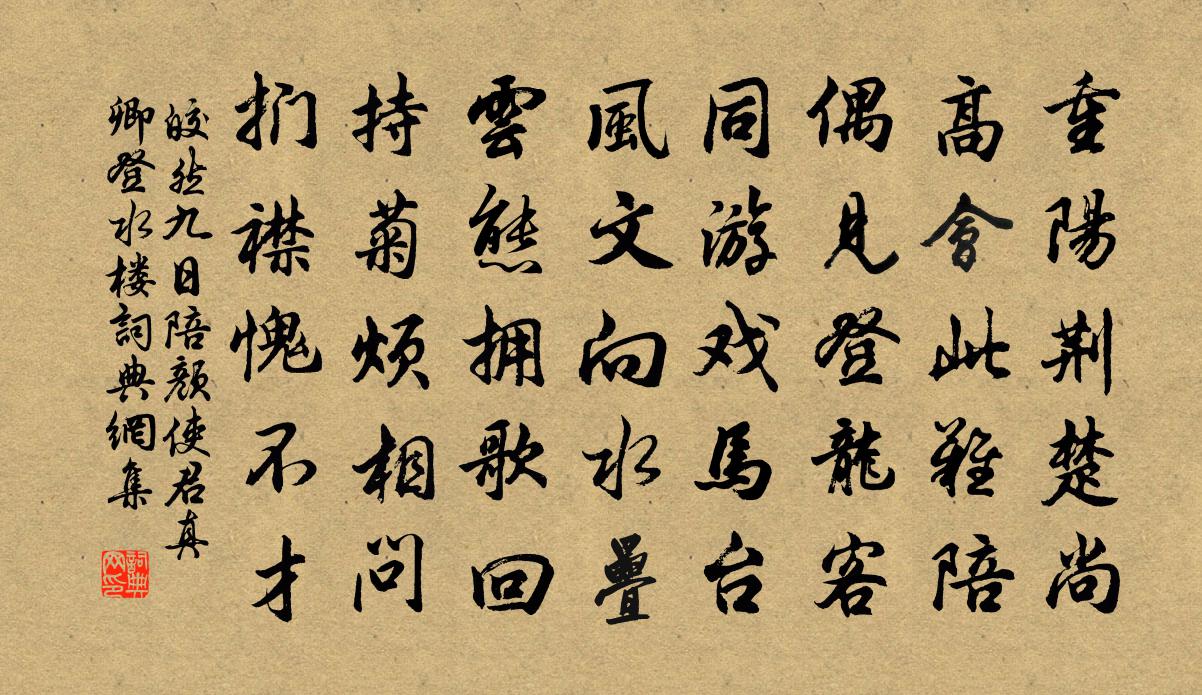 重陽荆楚尚
高會此難陪
偶見登龍客
同游戏馬台
風文向水疊
雲態拥歌回
持菊烦相問
扪襟愧不才
皎然九日陪顔使君真
卿登水楼詞典網集
詞典
网印